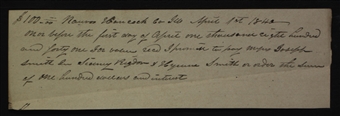 $100.00 Nauvoo Hancock Co Ill April 1st 1840
On or before the first day of April one thousand eight hundred
and forty one for value recd I promise to pay unto Joseph
Smith Sen Sidney Rigdon & Hyrum Smith or order the sum
of one hundred dollars and interest